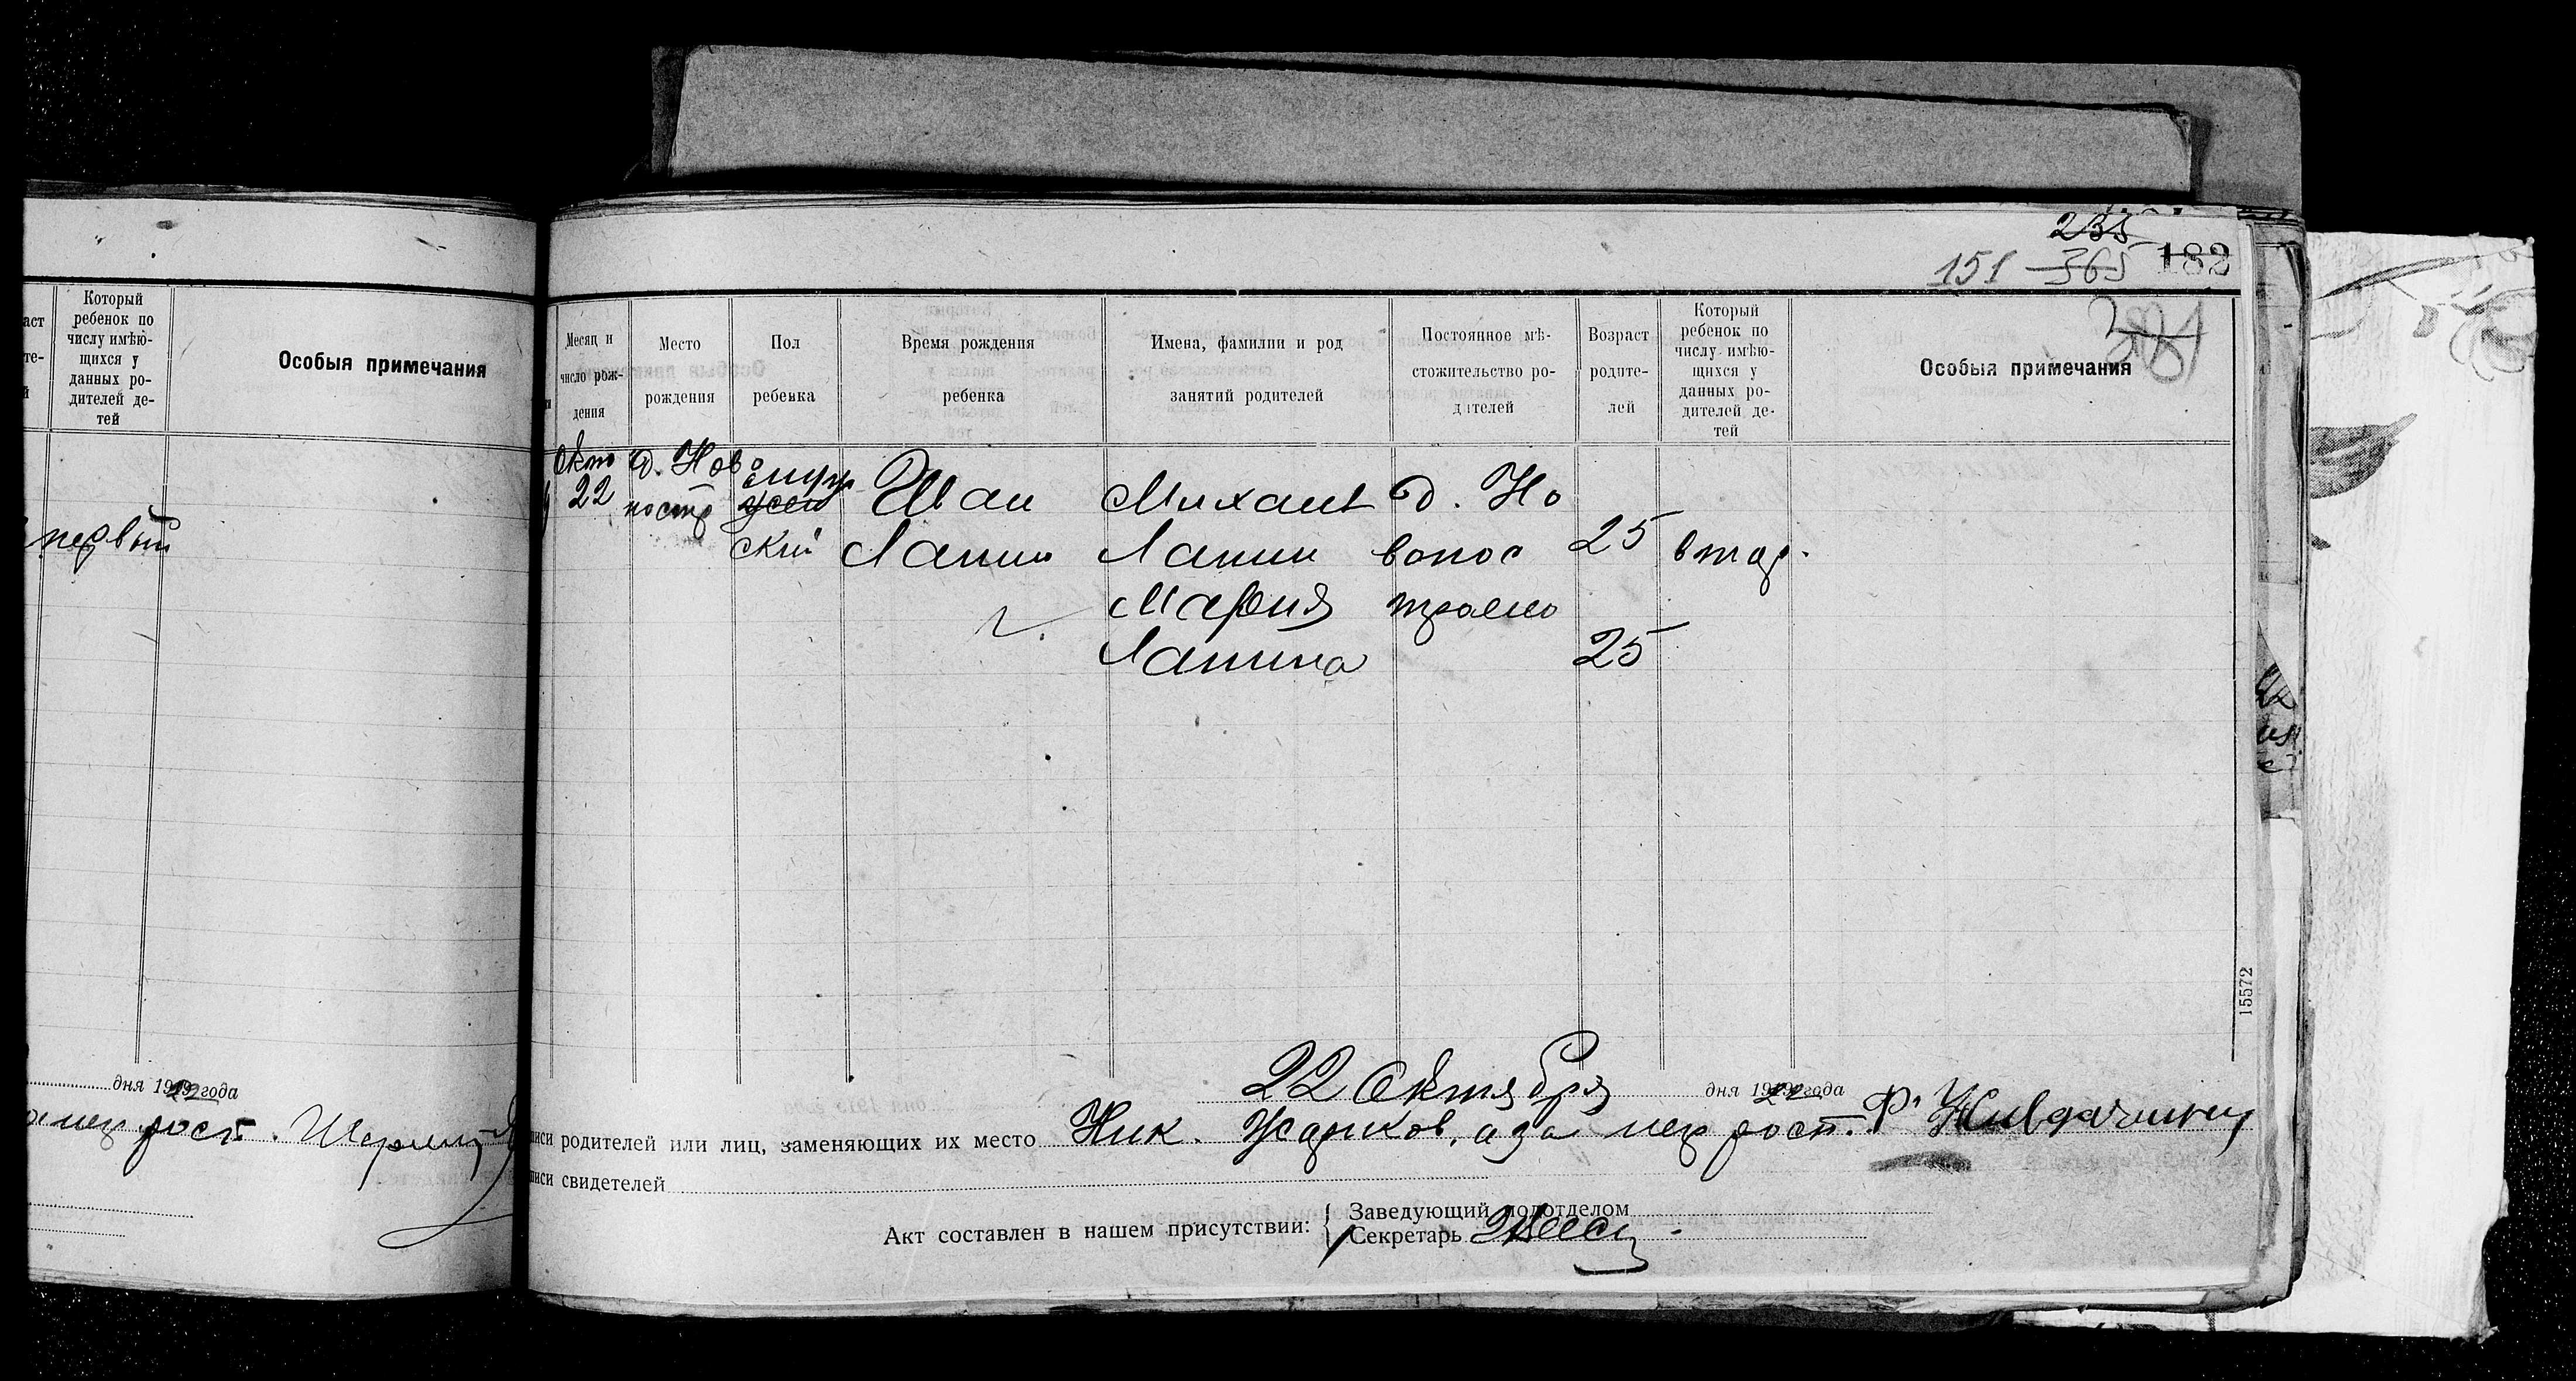 235
151 365 182
381
аст
те-
й
Который
ребенок по
числу имѣю-
щихся у
данных ро-
дителей де-
тей
Особыя примечания
первый
дня 1922 года
рост.
Месяц и
число рож-
дения
Место
рождения
Пол
ребенка
Время рождения
ребенка
Имена, фамилии и род
занятий родителей
Постоянное мѣ-
стожительство ро-
дителей
Возраст
родите-
лей
Который
ребенок по
числу имѣю-
щихся у
данных ро-
дителей де-
тей
Особыя примечания
Окто
22
д. Ново
костр
муж
жен
ский
Иван
Лапин
Михаил
Лапин
Мария
Лапина
д. Но
вокос
тромо
25
25
втор.
22 Октября дня 1922 года
писи родителей или лиц, заменяющих их место Ник. Жарков, а за негр рост. Ф.
писи свидетелей
Акт составлен в нашем присутствии:
Заведующий подотделом
Секретарь
15572